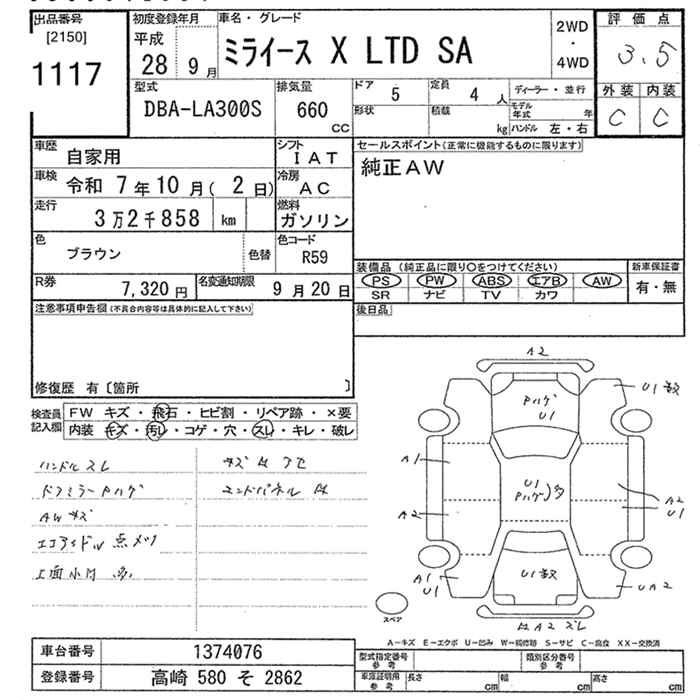 出品番号
[2150]
1117
初度登録年月
平成
28 9月
車名・グレード
ミライース X LTD SA
2WD
・
4WD
評価点
3.5
外装 内装
C C
型式
DBA-LA300S
排気量
660
CC
ドア 5
定員 4 人
ディーラー・並行
形状
積載 kg
モデル年式 年
ハンドル 左・右
車歴 自家用
シフト IAT
車検 令和 7年10月( 2日)
冷房 AC
走行 3万2千858 km
燃料 ガソリン
色 ブラウン
色替
色コード R59
R券 7,320円
名変通知期限 9月20日
セールスポイント(正常に機能するものに限ります)
純正AW
装備品 (純正品に限り○をつけてください)
新車保証書
PS PW ABS エアB AW
SR ナビ TV カワ
有・無
後日品
注意事項申告欄(不具合内容等は具体的に記入して下さい)
修復歴 有〔箇所 〕
検査員記入欄
FW キズ・飛石・ヒビ割・リペア跡・×要
内装 キズ・汚レ・コゲ・穴・スレ・キレ・破レ
ハンドルスレ
ドアミラーPハゲ
AWキズ
エコアイドル点メツ
エンドパネル
A2
U1
PハゲU1
A1
U1
Pハゲ
A2
A2
U1
A1
U1
U1
UA2
A2 スレ
スペア
A-キズ E-エクボ U-凹み W-補修跡 S-サビ C-腐食 XX-交換済
車台番号 1374076
登録番号 高崎 580 そ 2862
型式指定番号 参考
類別区分番号 参考
車庫証明用 参考
長さ cm
幅 cm
高さ cm